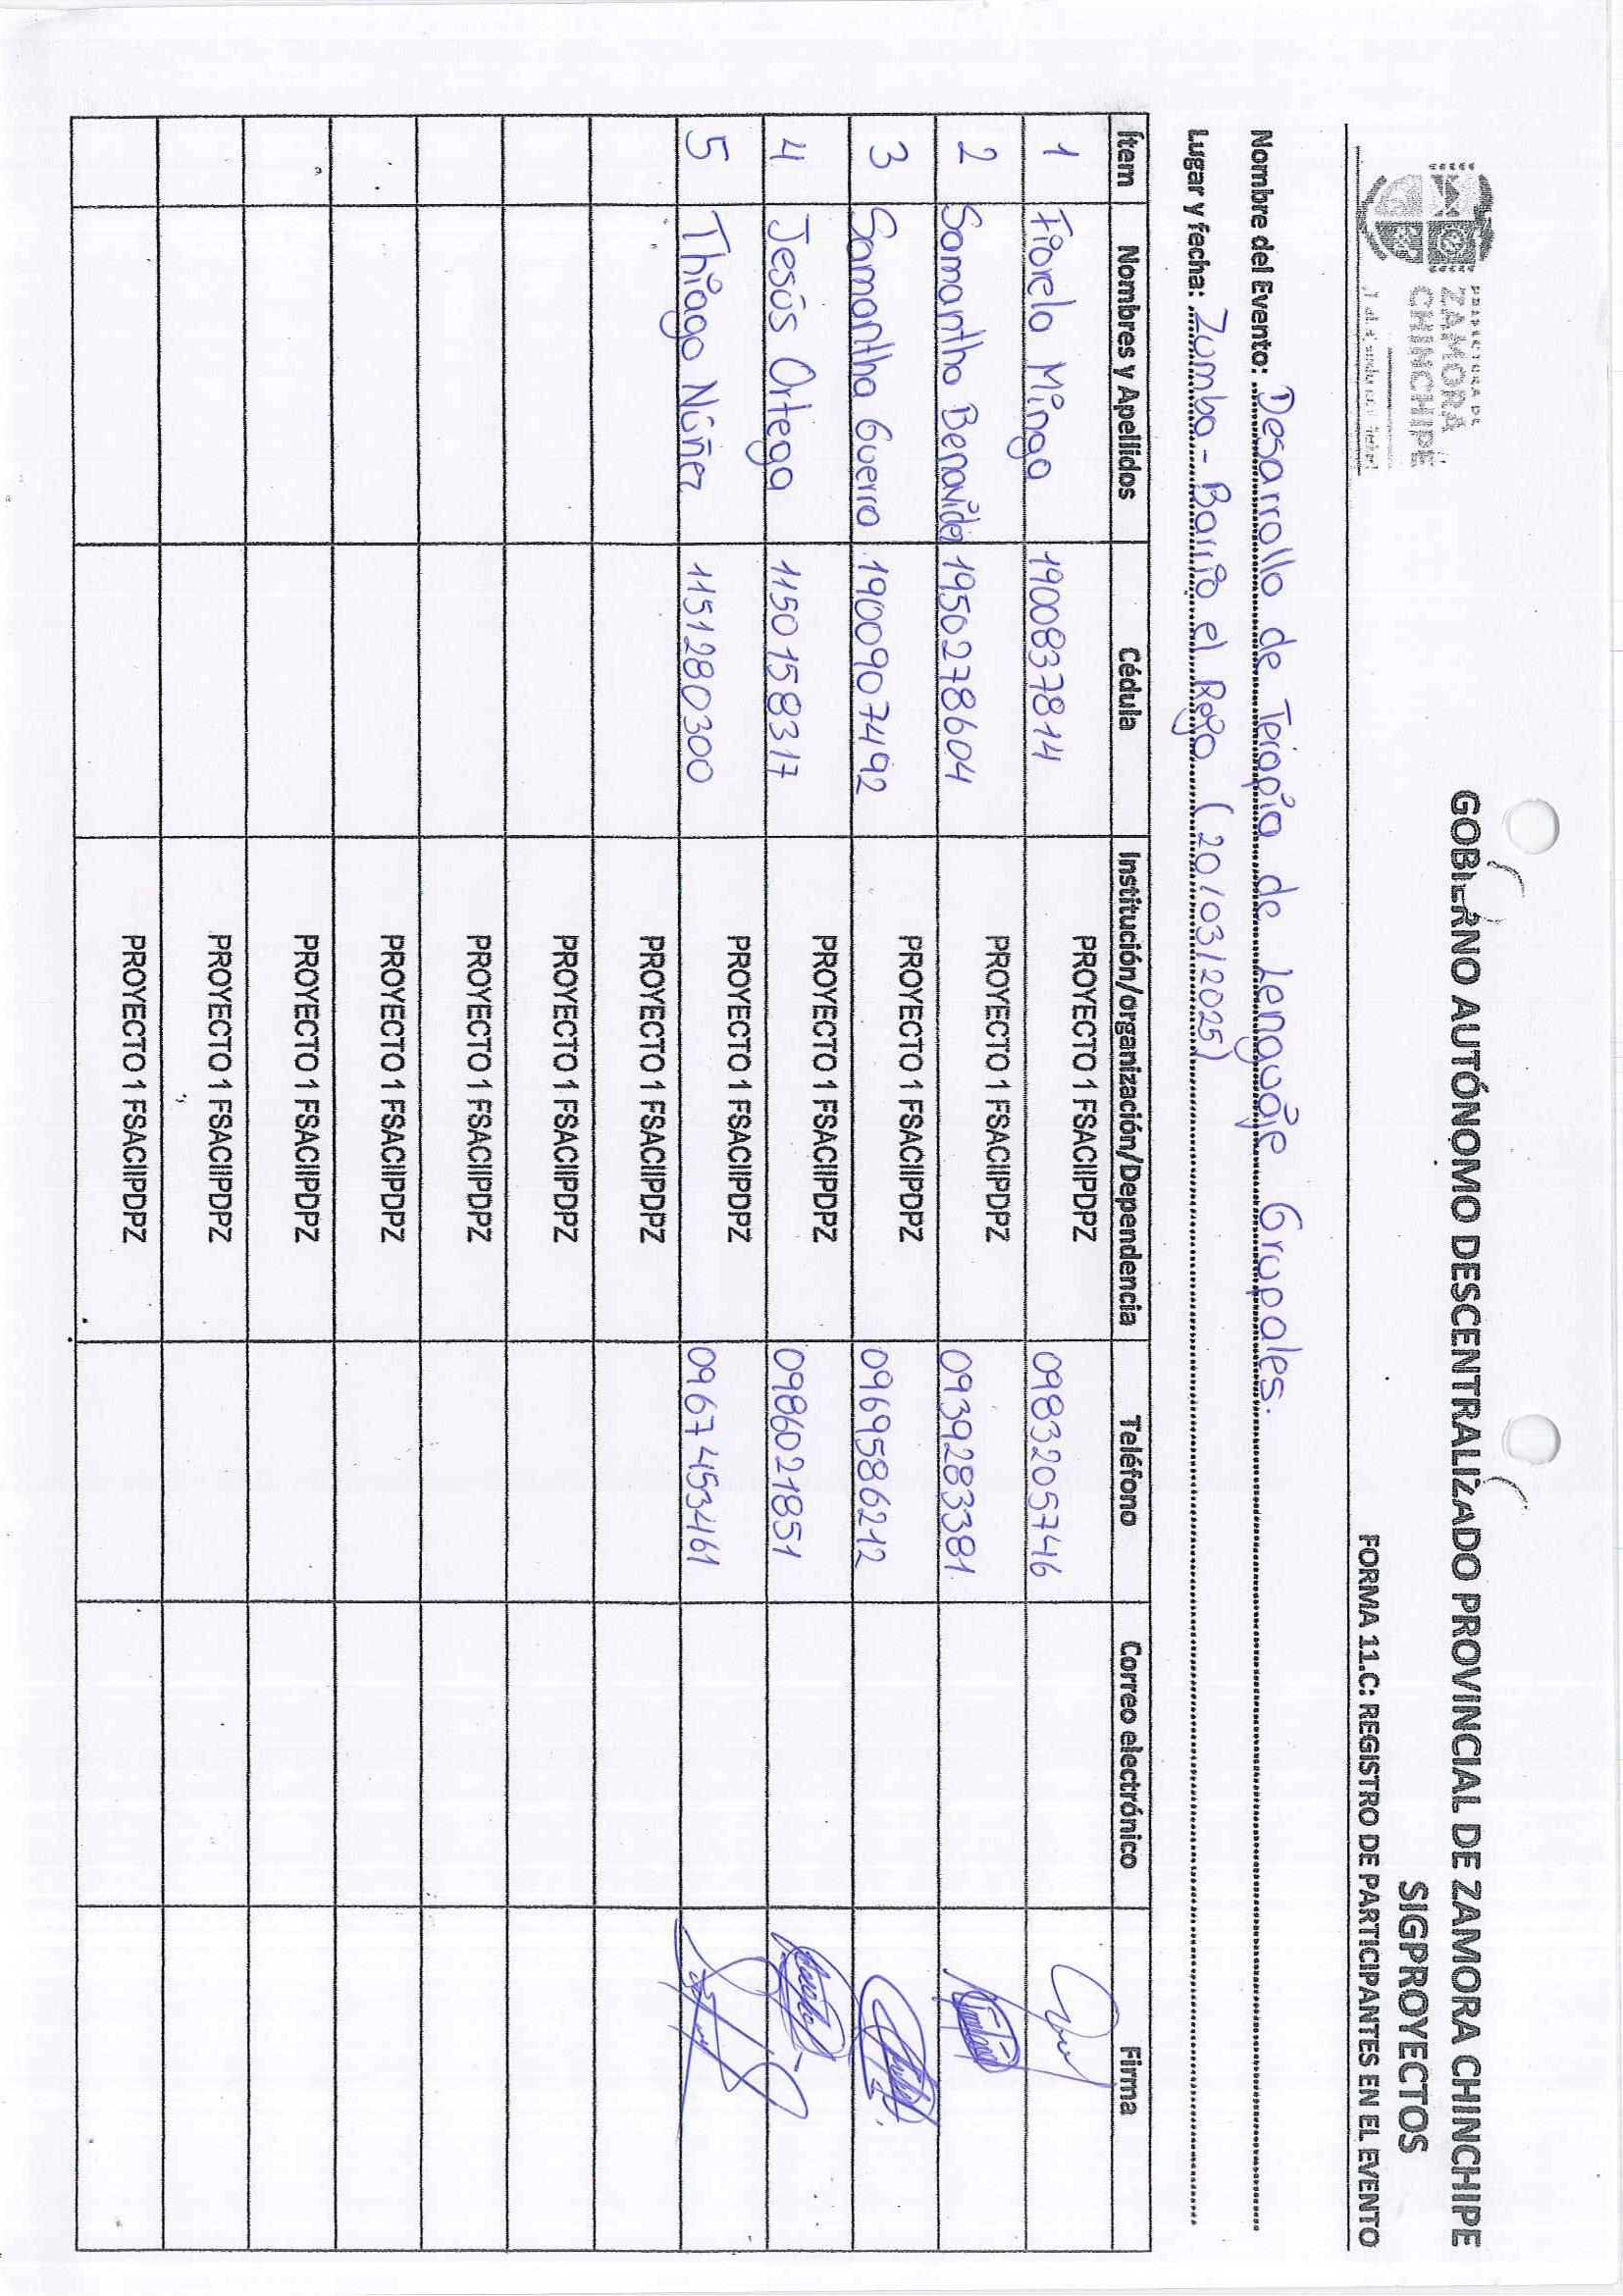 PREFECTURA DE
ZAMORA
CHINCHIPE
GOBIERNO AUTÓNOMO DESCENTRALIZADO PROVINCIAL DE ZAMORA CHINCHIPE
SIGPROYECTOS
FORMA 11.C: REGISTRO DE PARTICIPANTES EN EL EVENTO
Nombre del Evento: Desarrollo de Terapia de Lenguaje Grupales.
Lugar y fecha: Zumba - Barrio el Rejo (20/03/2025)
Ítem Nombres y Apellidos Cédula Institución/organización/Dependencia Teléfono Correo electrónico Firma
1 Fiorela Minga 1900837814 PROYECTO 1 FSACIIPDPZ 0983205746
2 Samantha Benavides 1950278604 PROYECTO 1 FSACIIPDPZ 0939283381
3 Samantha Guerra 1900907492 PROYECTO 1 FSACIIPDPZ 0969586212
4 Jesús Ortega 1150158317 PROYECTO 1 FSACIIPDPZ 0986021851
5 Thiago Núñez 1151280300 PROYECTO 1 FSACIIPDPZ 0967453461
PROYECTO 1 FSACIIPDPZ
PROYECTO 1 FSACIIPDPZ
PROYECTO 1 FSACIIPDPZ
PROYECTO 1 FSACIIPDPZ
PROYECTO 1 FSACIIPDPZ
PROYECTO 1 FSACIIPDPZ
PROYECTO 1 FSACIIPDPZ